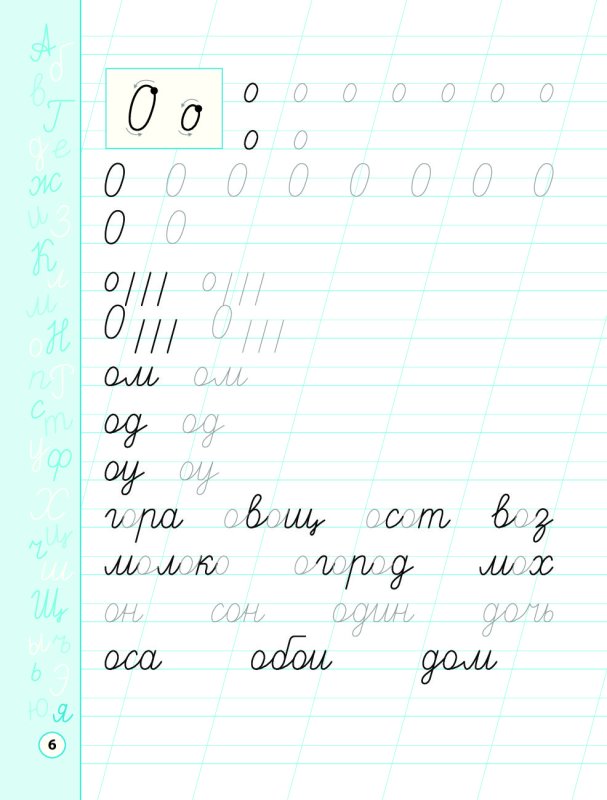 А
б
в
Г
д е
ж
и З
К
л
м
о Н
п Т
с
т
у ф
Х
ц
ч
ш
Щ
ы ъ
ь Э
Ю я
О о
о о о о о о о
о о
О О О О О О О О
О О
о/// о///
О/// О///
ом ом
од од
оу оу
гора овощ осот воз
молоко огород мох
он сон один дочь
оса обои дом
6